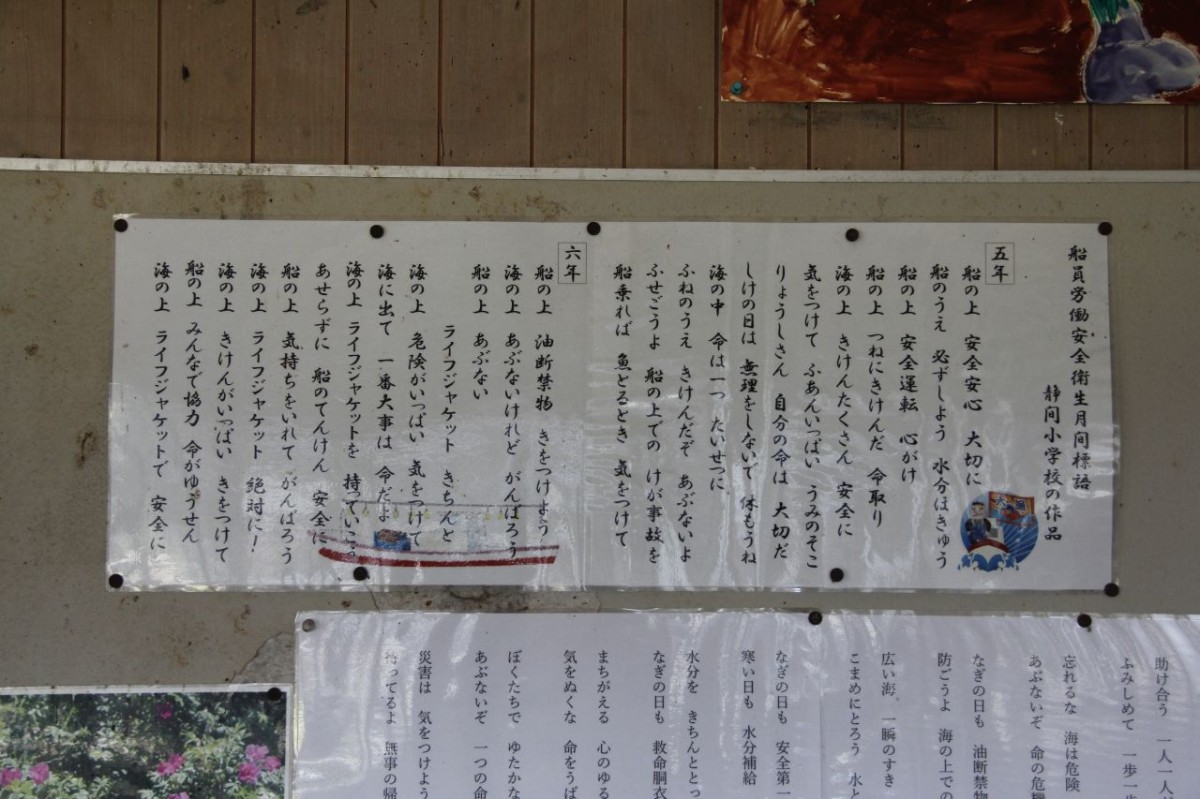 船員労働安全衛生月間標語
静間小学校の作品
五年
船の上　安全安心　大切に
船のうえ　必ずしよう　水分ほきゅう
船の上　安全運転　心がけ
船の上　つねにきけんだ　命取り
海の上　きけんたくさん　安全に
気をつけて　ふあんいっぱい　うみのそこ
りょうしさん　自分の命は　大切だ
しけの日は　無理をしないで　休もうね
海の中　命は一つ　たいせつに
ふねのうえ　きけんだぞ　あぶないよ
ふせごうよ　船の上での　けが事故を
船乗れば　魚とるとき　気をつけて
六年
船の上　油断禁物　きをつけよう
海の上　あぶないけれど　がんばろう
船の上　あぶない
ライフジャケット　きちんと
海の上　危険がいっぱい　気をつけて
海に出て　一番大事は　命だよ
海の上　ライフジャケットを　持っていこう
あせらずに　船のてんけん　安全に
船の上　気持ちをいれて　がんばろう
船の上　ライフジャケット　絶対に！
海の上　きけんがいっぱい　きをつけて
船の上　みんなで協力　命がゆうせん
海の上　ライフジャケットで　安全に
助け合う　一人一人が
ふみしめて　一歩一歩
忘れるな　海は危険
あぶないぞ　命の危機
なぎの日も　油断禁物
防ごうよ　海の上での
広い海、一瞬のすき
こまめにとろう　水と
なぎの日も　安全第一
寒い日も　水分補給
水分を　きちんととっ
なぎの日も　救命胴衣
まちがえる　心のゆる
気をぬくな　命をうば
ぼくたちで　ゆたかな
あぶないぞ　一つの命
災害は　気をつけよう
待ってるよ　無事の帰